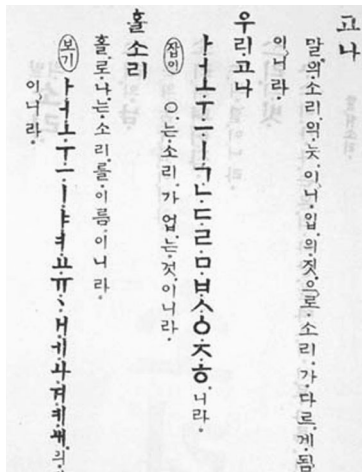 고나
말의소리의늣이니입의짓으로소리가다르게됨
이니라。
우리고나
ㅏㅓㅗㅜㅡㅣㄱㄴㄷㄹㅁㅂㅅㆁㅈㅎ니라。
잡이 ㅇ는소리가업는것이니라。
홀소리
홀로나는소리를이름이니라。
보기 ㅏㅓㅗㅜㅡㅣㅑㅕㅛㅠㆍㅐㅔㅘㅝㅖㅙ의
이니라。